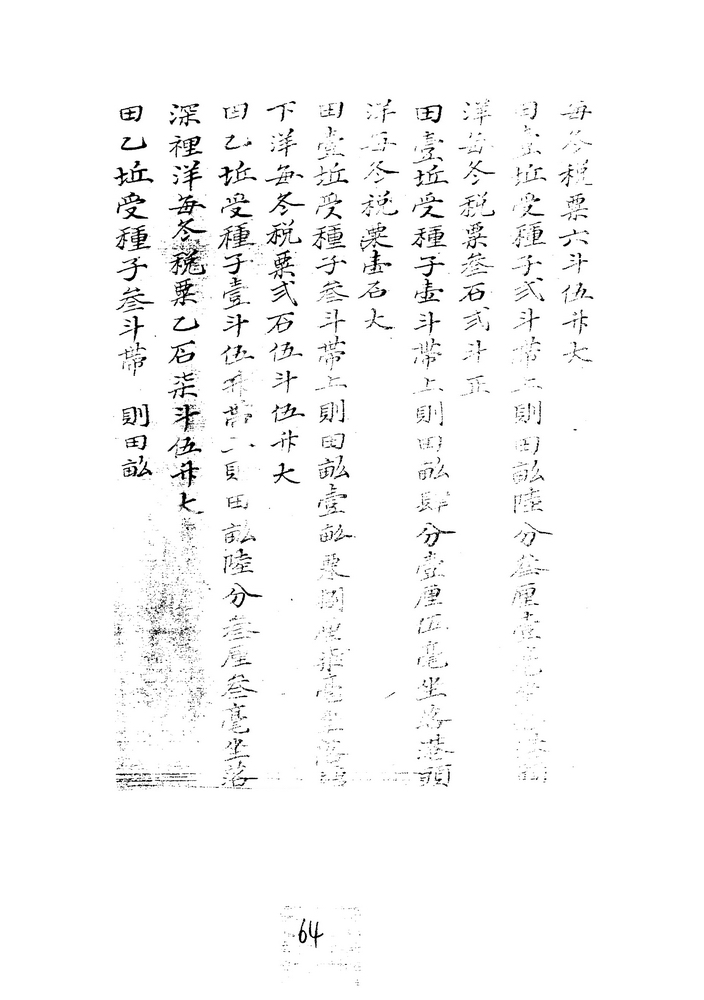 每冬税粟六斗伍升大
田壹坵受種子弍斗帶上則田畝陸分叁厘壹毫
洋每冬税粟叁石弍斗正
田壹坵受種子壹斗帶上則田畝肆分壹厘伍毫坐落港頭
洋每冬税粟壹石大
田壹坵受種子叁斗帶上則田畝壹畝零捌厘 毫坐落
下洋每冬税粟弍石伍斗伍升大
田乙坵受種子壹斗伍升帶 則田畝陸分叁厘叁毫坐落
深裡洋每冬税粟乙石柒斗伍升大
田乙坵受種子叁斗帶 則田畝
64